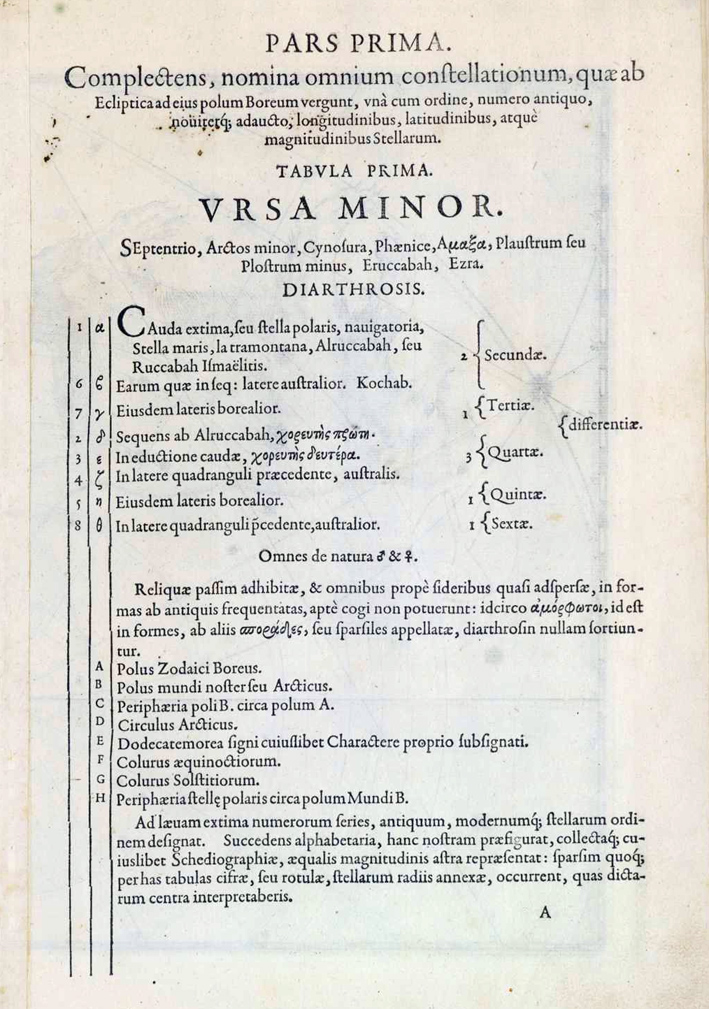 PARS PRIMA.
Complectens, nomina omnium conſtellationum, quæ ab
Ecliptica ad eius polum Boreum vergunt, vnà cum ordine, numero antiquo,
nouiterq́; adaucto, longitudinibus, latitudinibus, atquè
magnitudinibus Stellarum.
TABVLA PRIMA.
VRSA MINOR.
SEptentrio, Arctos minor, Cynoſura, Phænice, Αμαξα, Plauſtrum ſeu
Ploſtrum minus, Eruccabah, Ezra.
DIARTHROSIS.
1 α CAuda extima, ſeu ſtella polaris, nauigatoria,
Stella maris, la tramontana, Alruccabah, ſeu
Ruccabah Iſmaëlitis.
2 { Secundæ.
6 ϐ Earum quæ in ſeq: latere auſtralior. Kochab.
7 γ Eiusdem lateris borealior. 1 { Tertiæ.
{ differentiæ.
2 δ Sequens ab Alruccabah, χορευτὴς πρώτη.
3 ε In eductione caudæ, χορευτὴς δευτέρα. 3 { Quartæ.
4 ζ In latere quadranguli præcedente, auſtralis.
5 η Eiusdem lateris borealior. 1 { Quintæ.
8 θ In latere quadranguli p̄cedente, auſtralior. 1 { Sextæ.
Omnes de natura ♂ & ♀.
Reliquæ paſſim adhibitæ, & omnibus propè ſideribus quaſi adſperſæ, in for-
mas ab antiquis frequentatas, aptè cogi non potuerunt: idcirco ἀμόρφωτοι, id eſt
in formes, ab aliis σποράδες, ſeu ſparſiles appellatæ, diarthroſin nullam ſortiun-
tur.
A Polus Zodaici Boreus.
B Polus mundi noſter ſeu Arcticus.
C Periphæria poli B. circa polum A.
D Circulus Arcticus.
E Dodecatemorea ſigni cuiuſlibet Charactere proprio ſubſignati.
F Colurus æquinoctiorum.
G Colurus Solſtitiorum.
H Periphæria ſtellę polaris circa polum Mundi B.
Ad læuam extima numerorum ſeries, antiquum, modernumq́; ſtellarum ordi-
nem deſignat. Succedens alphabetaria, hanc noſtram præfigurat, collectaq́; cu-
iuslibet Schediographiæ, æqualis magnitudinis aſtra repræſentat: ſparſim quoq́;
per has tabulas cifræ, ſeu rotulæ, ſtellarum radiis annexæ, occurrent, quas dicta-
rum centra interpretaberis.
A